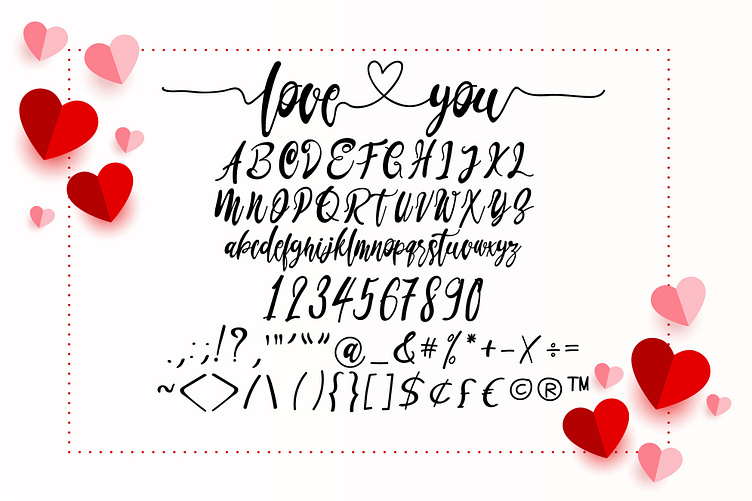 love you
ABCDEFGHIJKL
MNOPQRTUVWXYZ
abcdefghijklmnopqrstuvwxyz
1234567890
.,:;!?,'"'“”@_&#%*+-×÷=
~<>/\(){}[]$¢£€©®™